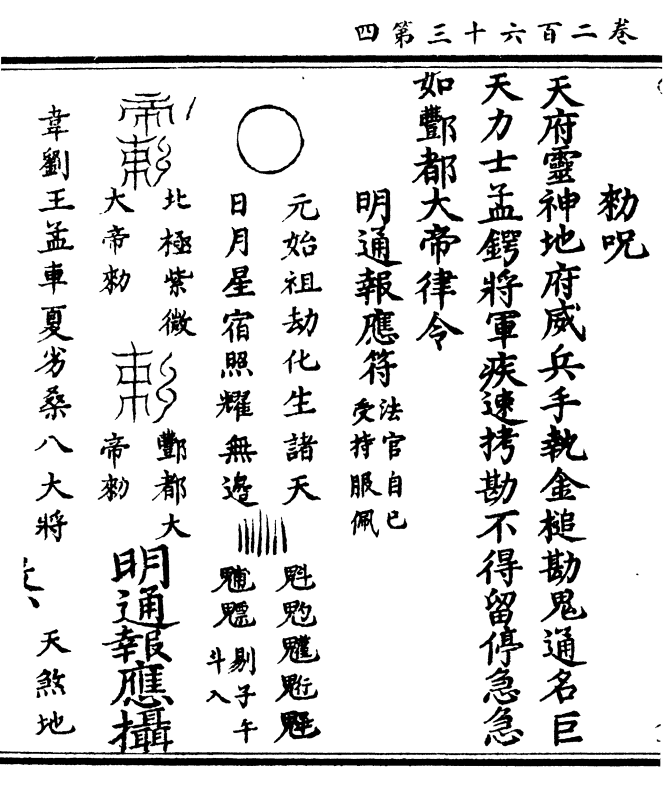 卷二百六十三第四
勑呪
天府靈神地府威兵手執金槌勘鬼通名巨
天力士孟鍔將軍疾速拷勘不得留停急急
如酆都大帝律令
明通報應符
法官自己
受持服佩
元始祖劫化生諸天
日月星宿照耀無邊
魁魡
魒
剔子午
斗入
北極紫微
大帝勑
酆都大
帝勑
明通報應攝
韋劉王孟車夏劣桑八大將
天煞地